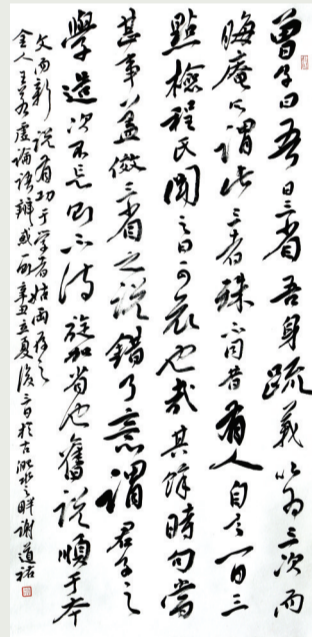 曾子曰吾日三省吾身疏義以為三次而
晦庵只謂此三者殊不同昔有人自言一日三
點檢程氏聞之曰可哀也哉其餘時句當
甚事蓋倣三省之說錯了意謂君子之
學造次不忘則亦不待旋加省也舊說順于本
文而新說有功于學者姑兩存之
金人王若虛論語辨惑一則辛丑立夏後三日於古洮水之畔謝道祐